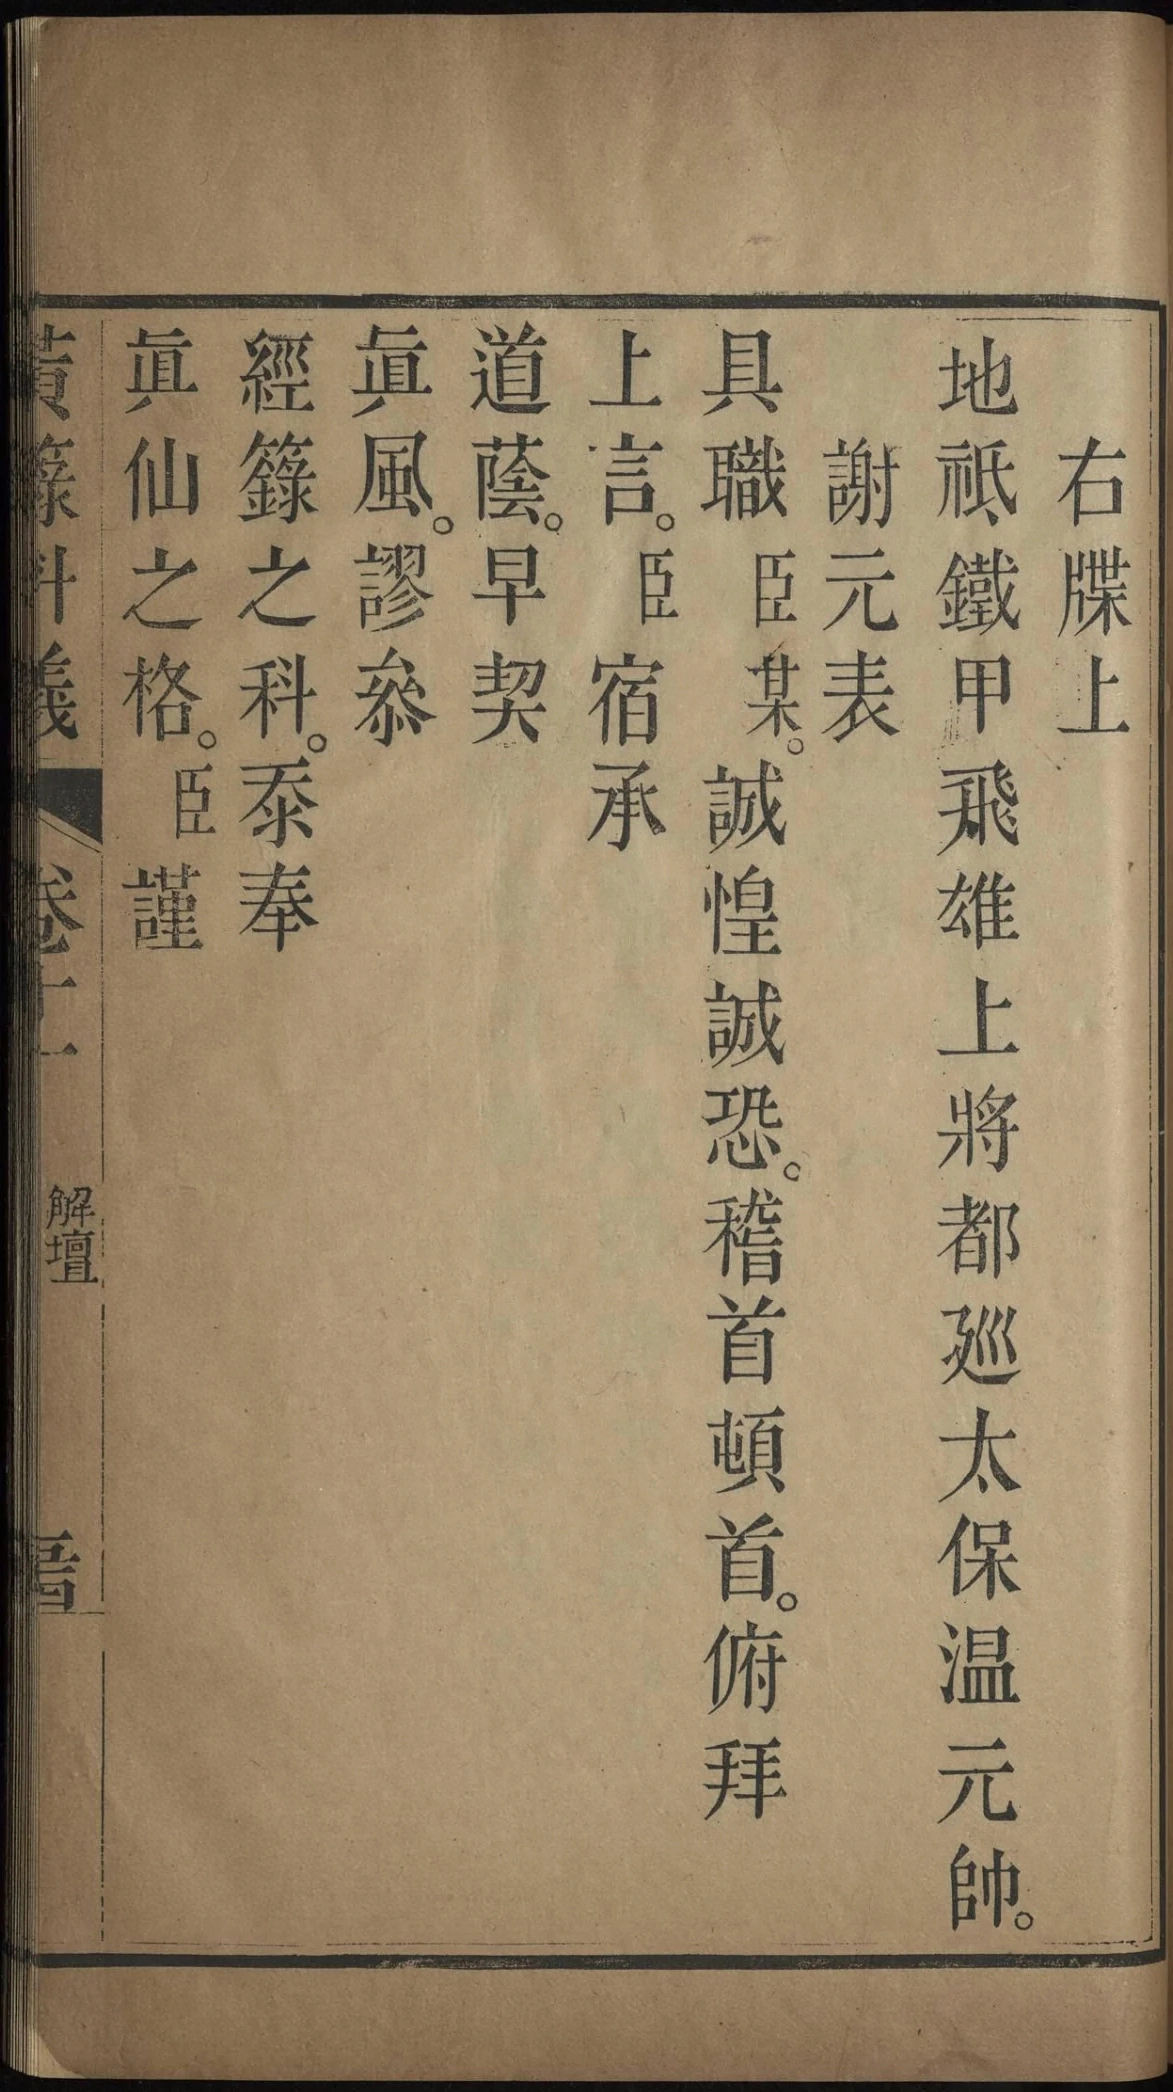 右牒上
地祇鐵甲飛雄上將都廵太保温元帥。
謝元表
具職臣某。誠惶誠恐。稽首頓首。俯拜
上言。臣宿承
道蔭。早契
眞風。謬叅
經籙之科。忝奉
眞仙之格。臣謹
黃籙科儀 卷十一 解壇